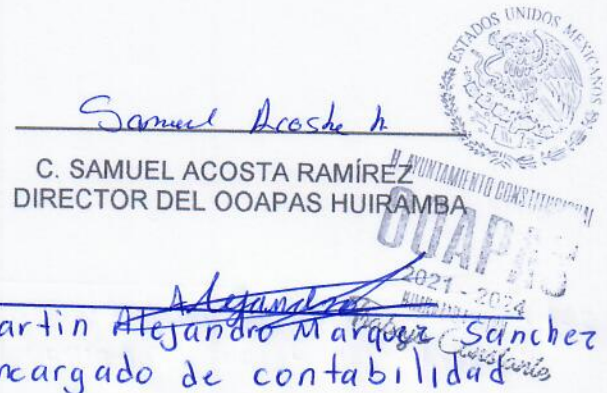 ESTADOS UNIDOS MEXICANOS
Samuel Acosta R.
C. SAMUEL ACOSTA RAMÍREZ
DIRECTOR DEL OOAPAS HUIRAMBA
H. AYUNTAMIENTO CONSTITUCIONAL
OOAPAS
2021 - 2024
Alejandro
artin Alejandro Marquez Sanchez
ncargado de contabilidad